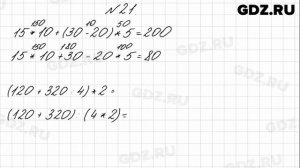 GDZ.RU
№21
150 10 50
15*10+(30-20)*5=200
150 180 100
15*10+30-20*5=80
(120+320:4)*2=
(120+320):(4*2)=